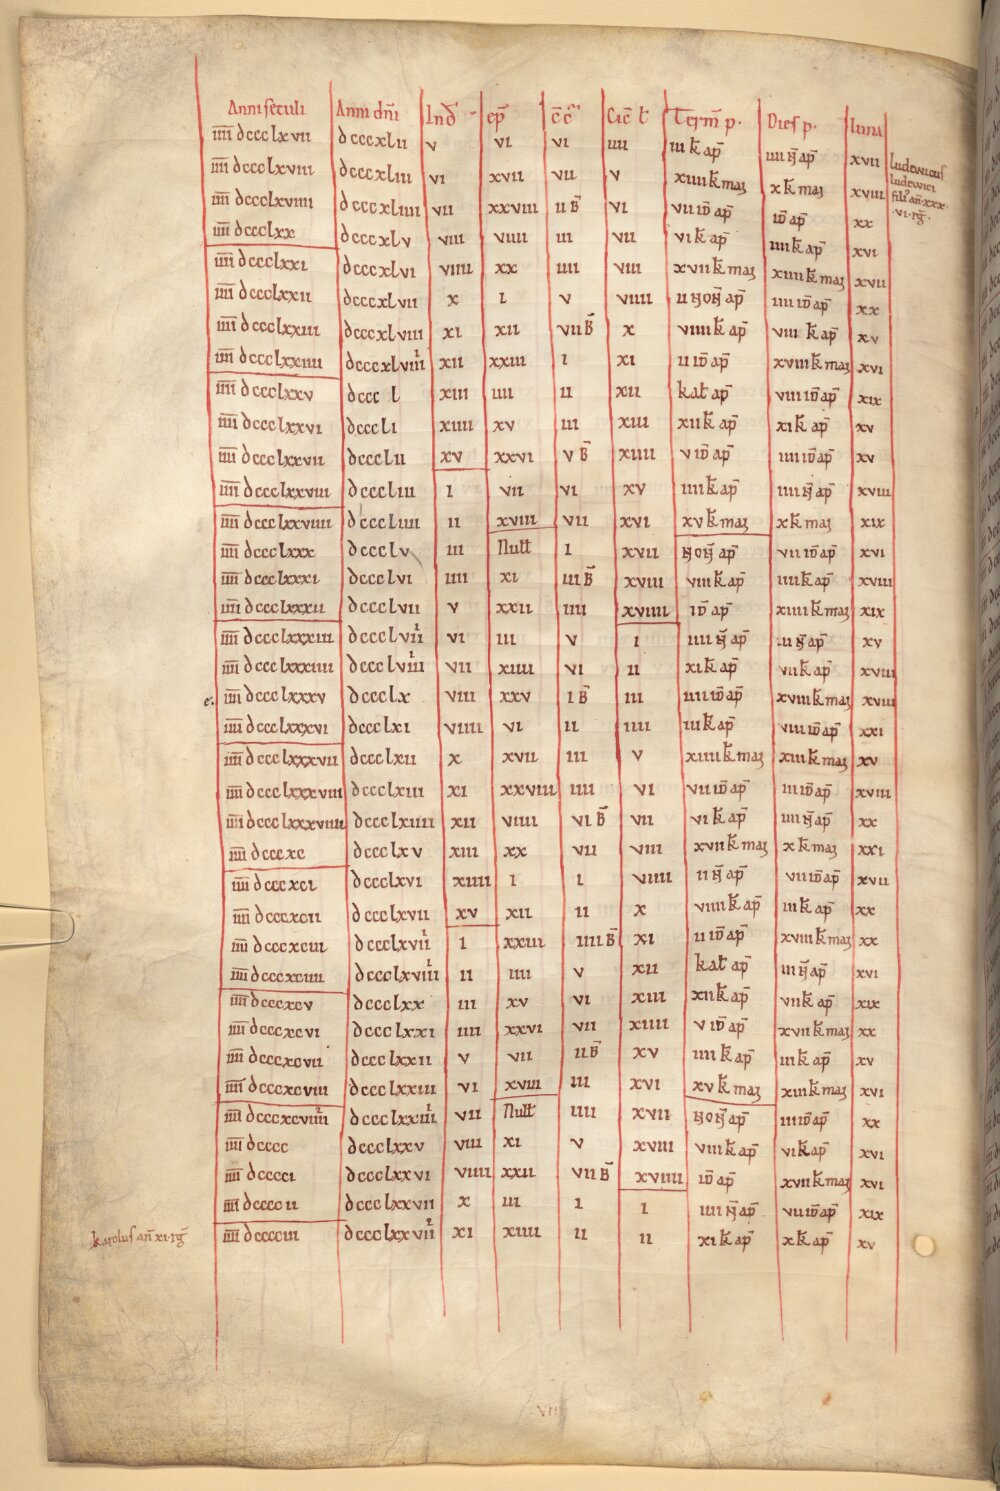 Anni seculi Anni dn̄i Ind̄ ep̄ c̄c̄ Cic̄ l̄ Term̄ p. Dies p. luna
īīīī dccclxvii dcccxlii v vi vi iiii iii k̄ ap̄ iiii n̄ ap̄ xvii
īīīī dccclxviii dcccxliii vi xvii vii v xiiii k̄ maȝ x k̄ maȝ xviii
īīīī dccclxviiii dcccxliiii vii xxviii ii B̄ vi vii id̄ ap̄ id̄ ap̄ xx
īīīī dccclxx dcccxlv viii viiii iii vii vi k̄ ap̄ iiii k̄ ap̄ xvi
īīīī dccclxxi dcccxlvi viiii xx iiii viii xvii k̄ maȝ xiiii k̄ maȝ xvii
īīīī dccclxxii dcccxlvii x i v viiii ii non̄ ap̄ iiii id̄ ap̄ xx
īīīī dccclxxiii dcccxlviii xi xii vii B̄ x viiii k̄ ap̄ viii k̄ ap̄ xv
īīīī dccclxxiiii dcccxlviiii xii xxiii i xi ii id̄ ap̄ xviii k̄ maȝ xvi
īīīī dccclxxv dccc l xiii iiii ii xii kal̄ ap̄ viii id̄ ap̄ xix
īīīī dccclxxvi dcccli xiiii xv iii xiii xii k̄ ap̄ xi k̄ ap̄ xv
īīīī dccclxxvii dccclii xv xxvi v B̄ xiiii v id̄ ap̄ iiii id̄ ap̄ xv
īīīī dccclxxviii dcccliii i vii vi xv iiii k̄ ap̄ iiii n̄ ap̄ xviii
īīīī dccclxxviiii dcccliiii ii xviii vii xvi xv k̄ maȝ x k̄ maȝ xix
īīīī dccclxxx dccclv iii Null̄ i xvii non̄ ap̄ vii id̄ ap̄ xvi
īīīī dccclxxxi dccclvi iiii xi iii B̄ xviii viii k̄ ap̄ iiii k̄ ap̄ xviii
īīīī dccclxxxii dccclvii v xxii iiii xviiii id̄ ap̄ xiiii k̄ maȝ xix
īīīī dccclxxxiii dccclviii vi iii v i iiii n̄ ap̄ iii n̄ ap̄ xv
īīīī dccclxxxiiii dccclviiii vii xiiii vi ii xi k̄ ap̄ vii k̄ ap̄ xviii
e. īīīī dccclxxxv dccclx viii xxv i B̄ iii iiii id̄ ap̄ xviii k̄ maȝ xviii
īīīī dccclxxxvi dccclxi viiii vi ii iiii iii k̄ ap̄ viii id̄ ap̄ xxi
īīīī dccclxxxvii dccclxii x xvii iii v xiiii k̄ maȝ xiii k̄ maȝ xv
īīīī dccclxxxviii dccclxiii xi xxviii iiii vi vii id̄ ap̄ iii id̄ ap̄ xviii
īīīī dccclxxxviiii dccclxiiii xii viiii vi B̄ vii vi k̄ ap̄ iiii n̄ ap̄ xx
īīīī dcccxc dccclxv xiii xx vii viii xvii k̄ maȝ x k̄ maȝ xxi
īīīī dcccxci dccclxvi xiiii i i viiii ii n̄ ap̄ vii id̄ ap̄ xvii
īīīī dcccxcii dccclxvii xv xii ii x viiii k̄ ap̄ iii k̄ ap̄ xx
īīīī dcccxciii dccclxviii i xxiii iiii B̄ xi ii id̄ ap̄ xviii k̄ maȝ xx
īīīī dcccxciiii dccclxviiii ii iiii v xii kal̄ ap̄ iii n̄ ap̄ xvi
īīīī dcccxcv dccclxx iii xv vi xiii xii k̄ ap̄ vii k̄ ap̄ xix
īīīī dcccxcvi dccclxxi iiii xxvi vii xiiii v id̄ ap̄ xvii k̄ maȝ xx
īīīī dcccxcvii dccclxxii v vii ii B̄ xv iiii k̄ ap̄ iii k̄ ap̄ xv
īīīī dcccxcviii dccclxxiii vi xviii iii xvi xv k̄ maȝ xiii k̄ maȝ xvi
īīīī dcccxcviiii dccclxxiiii vii Null̄ iiii xvii non̄ ap̄ iiii id̄ ap̄ xx
īīīī dcccc dccclxxv viii xi v xviii viii k̄ ap̄ vi k̄ ap̄ xvi
īīīī dcccci dccclxxvi viiii xxii vii B̄ xviiii id̄ ap̄ xvii k̄ maȝ xvi
īīīī dccccii dccclxxvii x iii i i iiii n̄ ap̄ vii id̄ ap̄ xix
īīīī dcccciii dccclxxviii xi xiiii ii ii xi k̄ ap̄ x k̄ ap̄ xv
ludewicus
ludewici
fili' an̄ xxx.
.vi. rḡ.
karolus an̄ xi rḡ